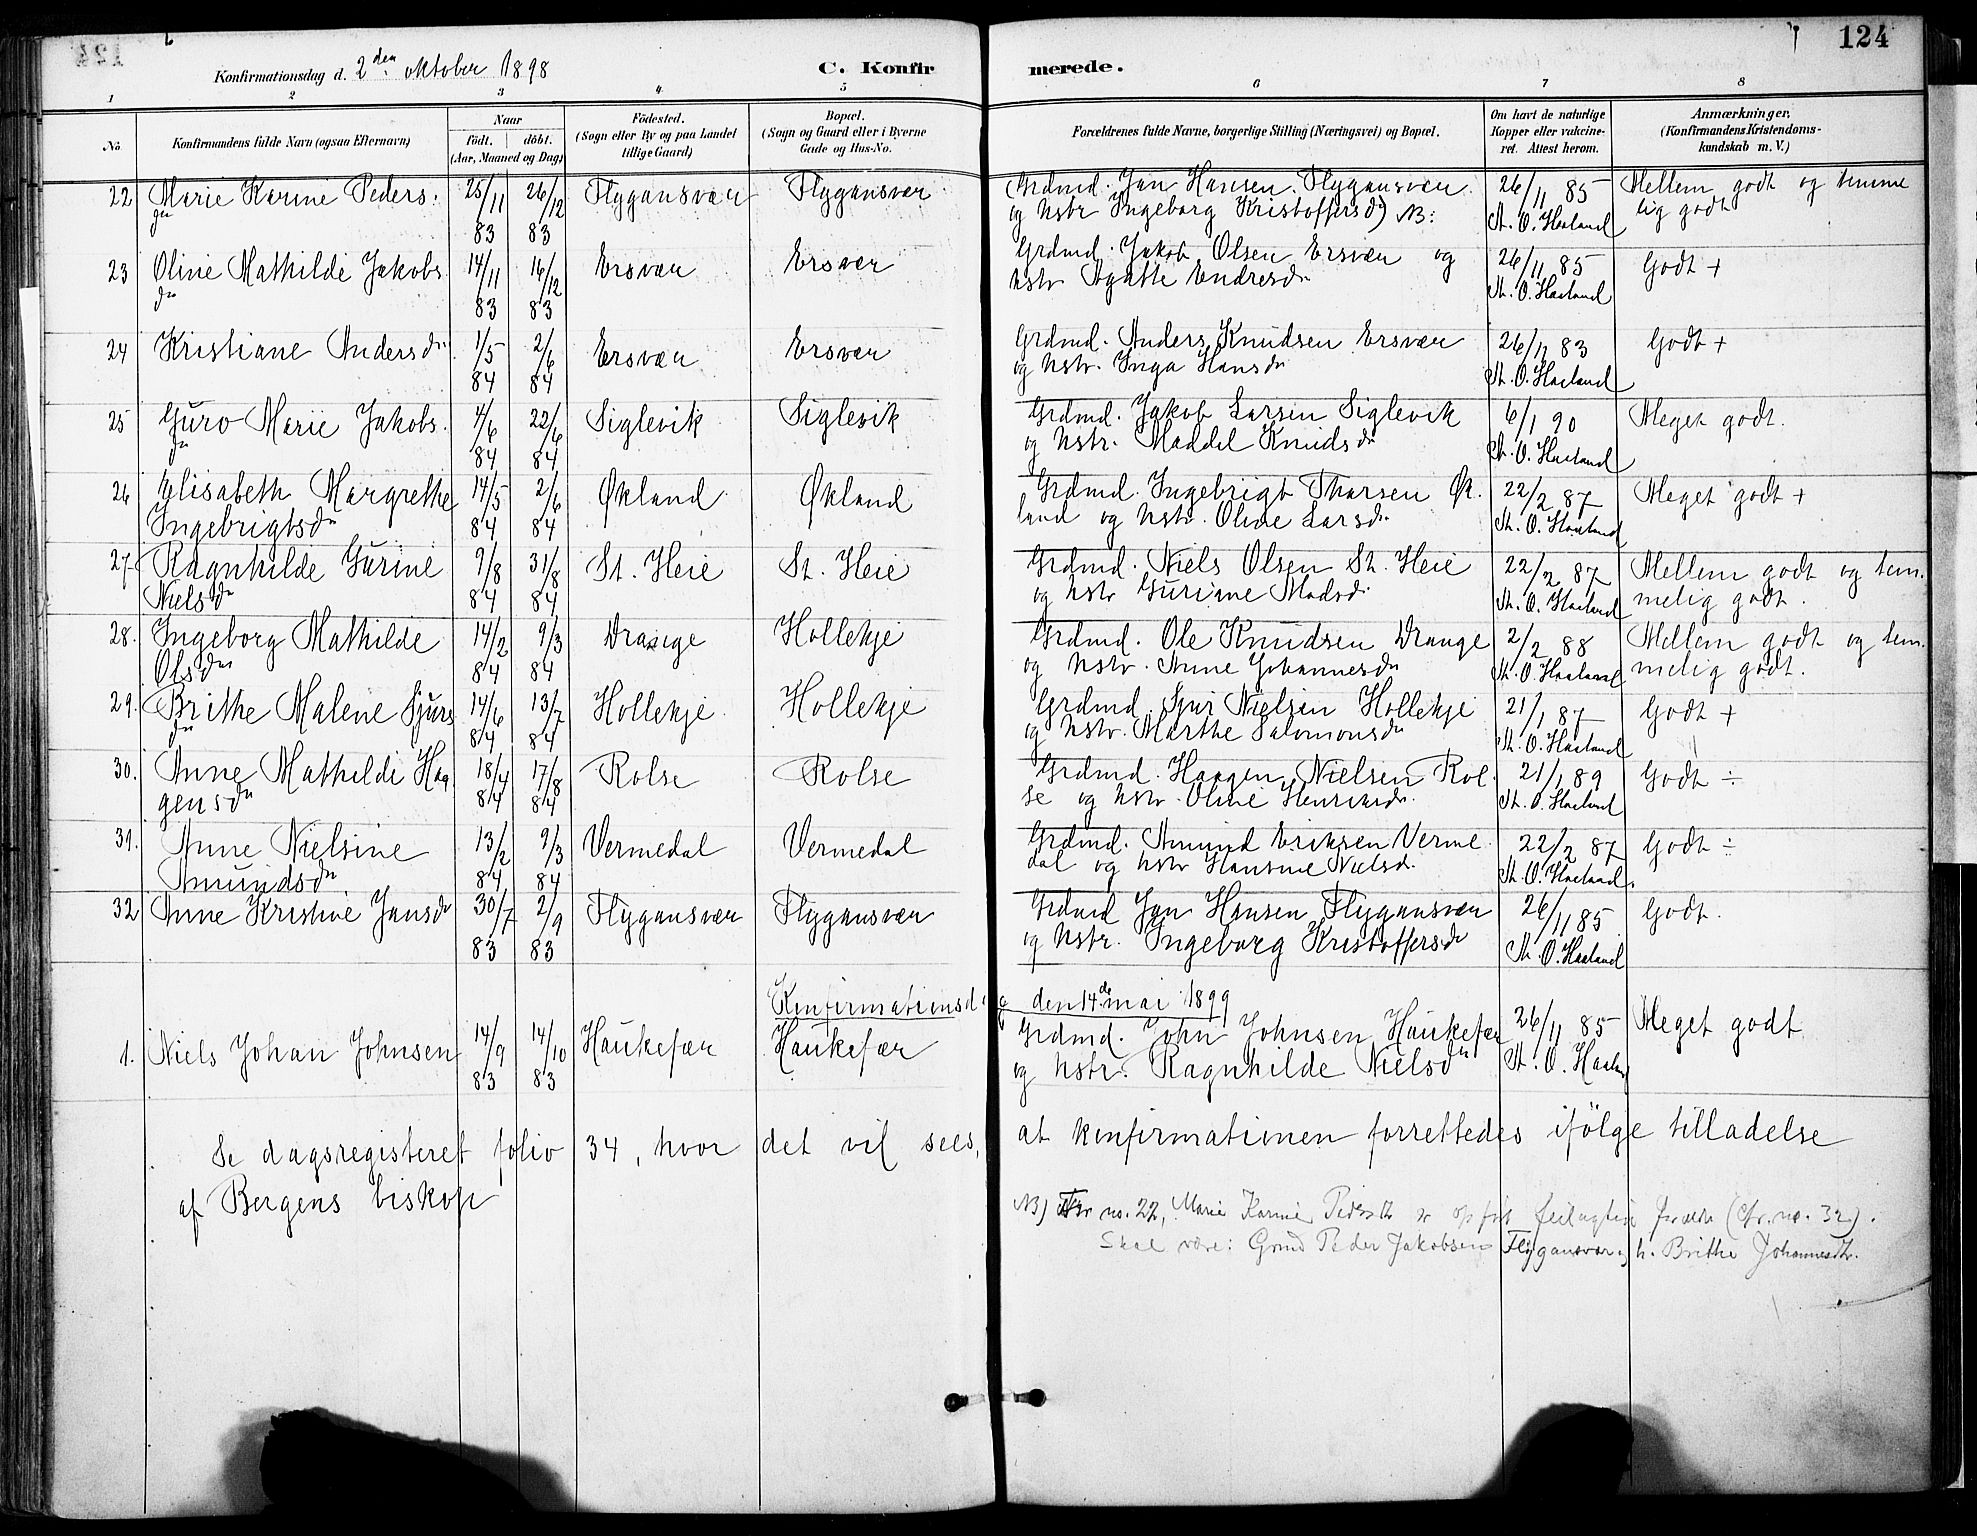 124
Konfirmationsdag d. 2den oktober 1898 C. Konfirmerede.
1 2 3 4 5 6 7 8
No. Konfirmandens fulde Navn (ogsaa Efternavn) Naar født. døbt. (Aar, Maaned og Dag) Fødested. (Sogn eller By og paa Landet tillige Gaard) Bopæl. (Sogn og Gaard eller i Byerne Gade og Hus-No. Forældrenes fulde Navne, borgerlige Stilling (Næringsvei) og Bopæl. Om havt de naturlige Kopper eller vakcineret. Attest herom. Anmærkninger. (Konfirmandens Kristendomskundskab m. V.)
22 Marie Karine Peders. 25/11 26/12 Flygansvær Flygansvær (Grdmd. Jan Hansen Flygansvær 26/11 85 Mellem godt og temme
dtr 83 83 og hstr Ingeborg Kristoffersd) NB: Th. O. Haaland lig godt
23 Oline Mathilde Jakobs. 14/11 16/12 Ersvær Ersvær Grdmd. Jakob Olsen Ersvær og 26/11 85 Godt +
dtr 83 83 hstr Agatte Endresdr Th. O. Haaland
24 Kristiane Andersdr 1/5 2/6 Ersvær Ersvær Grdmd. Anders Knudsen Ersvær 26/11 83 Godt +
84 84 og hstr. Inga Hansdr Th. O. Haaland
25 Guro Marie Jakobs. 4/6 22/6 Siglevik Siglevik Grdmd. Jakob Larsen Siglevik 6/1 90 Meget godt.
dr 84 84 og hstr. Maddel Knudsdr Th. O. Haaland
26 Elisabeth Margrethe 14/5 2/6 Økland Økland Grdmd. Ingebrigt Tharsen Øk. 22/2 87 Meget godt +
Ingebrigtsdr 84 84 land og hstr. Oline Larsdr Th. O. Haaland
27 Ragnhilde Gurine 9/8 31/8 St. Heie St. Heie Grdmd. Niels Olsen St. Heie 22/2 87 Mellem godt og tem.
Nielsdr 84 84 og hstr Gurine Madsd. Th. O. Haaland melig godt.
28. Ingeborg Mathilde 14/2 9/3 Drange Hollekje Grdmd. Ole Knudsen Drange 2/2 88 Mellem godt og tem.
Olsdtr 84 84 og hstr. Anne Johannesdr Th. O. Haaland melig godt.
29. Brithe Malene Sjurs 14/6 13/7 Hollekje Hollekje Grdmd. Sjur Nielsen Hollekje 21/1 87 Godt +
dr 84 84 og hstr. Marthe Salomonsdr Th. O. Haaland
30. Anne Mathilde Haa 18/4 17/8 Rolse Rolse Grdmd. Haagen Nielsen Rol. 21/1 89 Godt ÷
gensdr 84 84 se og hstr. Oline Henriksdr. Th. O. Haaland
31. Anne Nielsine 13/2 9/3 Vermedal Vermedal Grdmd. Amund Eriksen Verme 22/2 87 Godt ÷
Amundsdr 84 84 dal og hstr Hansine Nielsd. Th. O. Haaland.
32 Anne Kristine Jansdr 30/7 2/9 Flygansvær Flygansvær Grdmd Jan Hansen Flygansvær 26/11 85 Godt.
83 83 og hstr. Ingeborg Kristoffersdr Th. O. Haaland
Konfirmationsdag den 14de mai 1899
1. Niels Johan Johnsen 14/9 14/10 Haukefær Haukefær Grdmd. John Johnsen Haukefær 26/11 85 Meget godt
83 83 og hstr. Ragnhilde Nielsdtr Th. O. Haalan
Se dagsregisteret folio 34, hvor det vil sees, at konfirmationen forrettedes ifølge tilladelse
af Bergens biskop
NB) For no. 22, Marie Karine Pedersdtr er opført feilagtige forældre (cfr. no. 32).
Skal være: Grmd Peder Jakobsen Flygansvær og h. Brithe Johannesdtr.